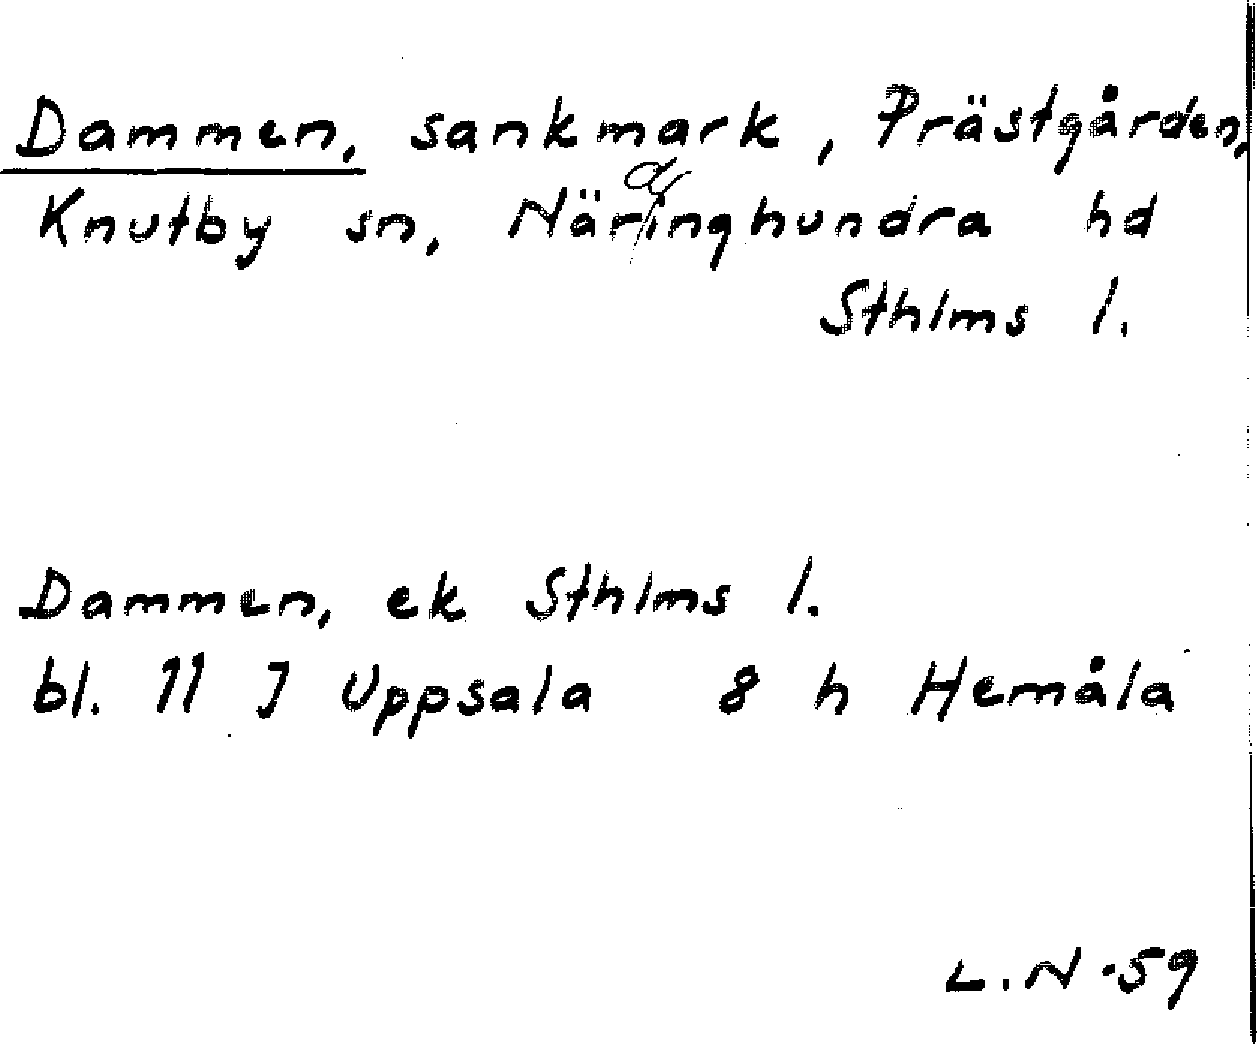 Dammen, sankmark, Prästgården,
Knutby sn, Näringhundra hd
Sthlms l.
Dammen, ek Sthlms l.
bl. 11 J Uppsala 8 h Hemåla
L.N-59